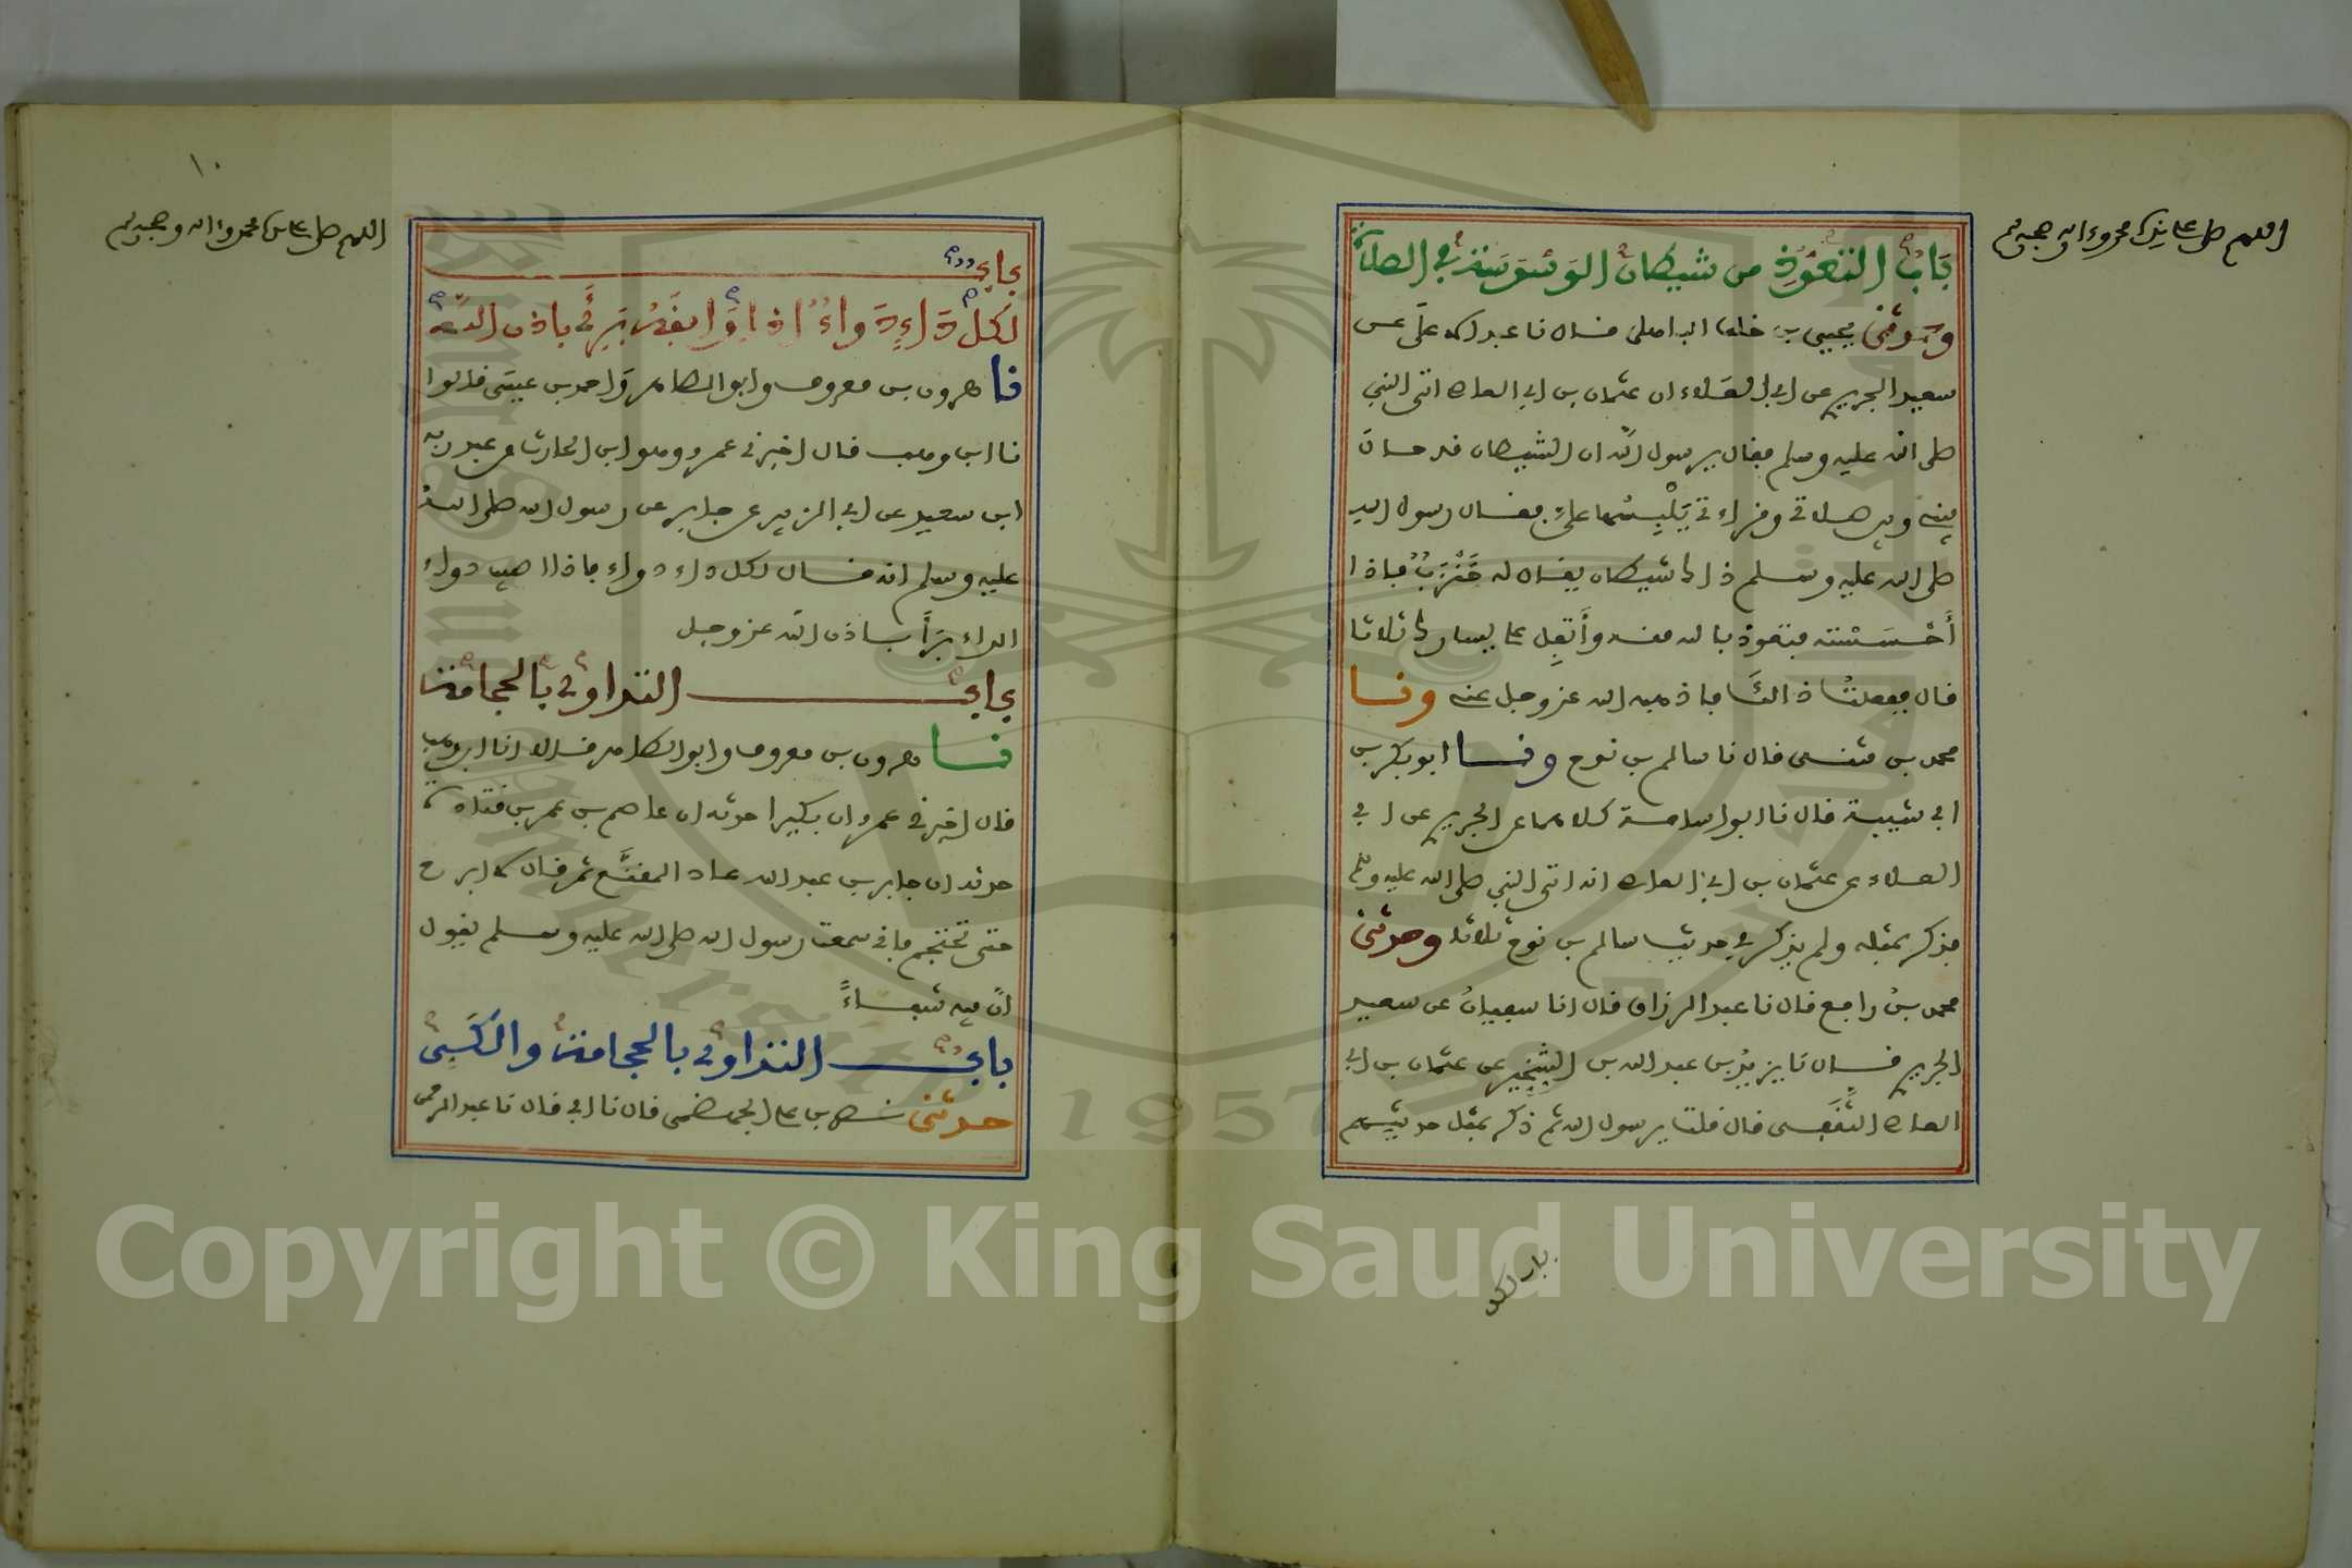 اللهم صل على سيدنا محمد وءاله وصحبه وسلم
باب التعوذ من شيطان الوسوسة في الصلاة
وحدثني يحيى بن خلف الباهلي قال نا عبد الاعلى عن
سعيد الجريري عن ابي العلاء ان عثمان بن ابي العاص اتى النبي
صلى الله عليه وسلم فقال يرسول الله ان الشيطان قد حال
بيني وبين صلاتي وقراءتي يلبسها علي فقال رسول الله
صلى الله عليه وسلم ذاك شيطان يقال له خنزب فاذا
أحسسته فتعوذ بالله منه وأتفل على يسارك ثلاثا
قال ففعلت ذالك فاذهبه الله عز وجل عني ونا
محمد بن مثنى قال نا سالم بن نوح ونا ابو بكر بن
ابي شيبة قال نا ابو اسامة كلاهما عن الجريري عن ابي
العلاء عن عثمان بن ابي العاص انه اتى النبي صلى الله عليه وسلم
فذكر بمثله ولم يذكر في حديث سالم بن نوح ثلاثا وحدثني
محمد بن رافع قال نا عبد الرزاق قال انا سفيان عن سعيد
الجريري قال نا يزيد بن عبد الله بن الشخير عن عثمان بن ابي
العاص الثقفي قال قلت يرسول الله ثم ذكر بمثل حديثهم
باب لكل
١٠
اللهم صل على سيدنا محمد وءاله وصحبه وسلم
باب
لكل داء دواء اذا وافقه برئ باذن الله
نا هرون بن معروف وابو الطاهر واحمد بن عيسى قالوا
نا ابن وهب قال اخبرني عمرو وهو ابن الحارث عن عبد ربه
ابن سعيد عن ابي الزبير عن جابر عن رسول الله صلى الله
عليه وسلم انه قال لكل داء دواء فاذا اصيب دواء
الداء برأ باذن الله عز وجل
باب التداوي بالحجامة
نا هرون بن معروف وابو الطاهر قالا نا ابن وهب
قال اخبرني عمرو ان بكيرا حدثه ان عاصم بن عمر بن قتادة
حدثه ان جابر بن عبد الله عاد المقنع ثم قال لا ابرح
حتى تحتجم فاني سمعت رسول الله صلى الله عليه وسلم يقول
ان فيه شفاء
باب التداوي بالحجامة والكي
حدثني نصر بن علي الجهضمي قال نا ابي قال نا عبد الرحمن
Copyright © King Saud University
1957